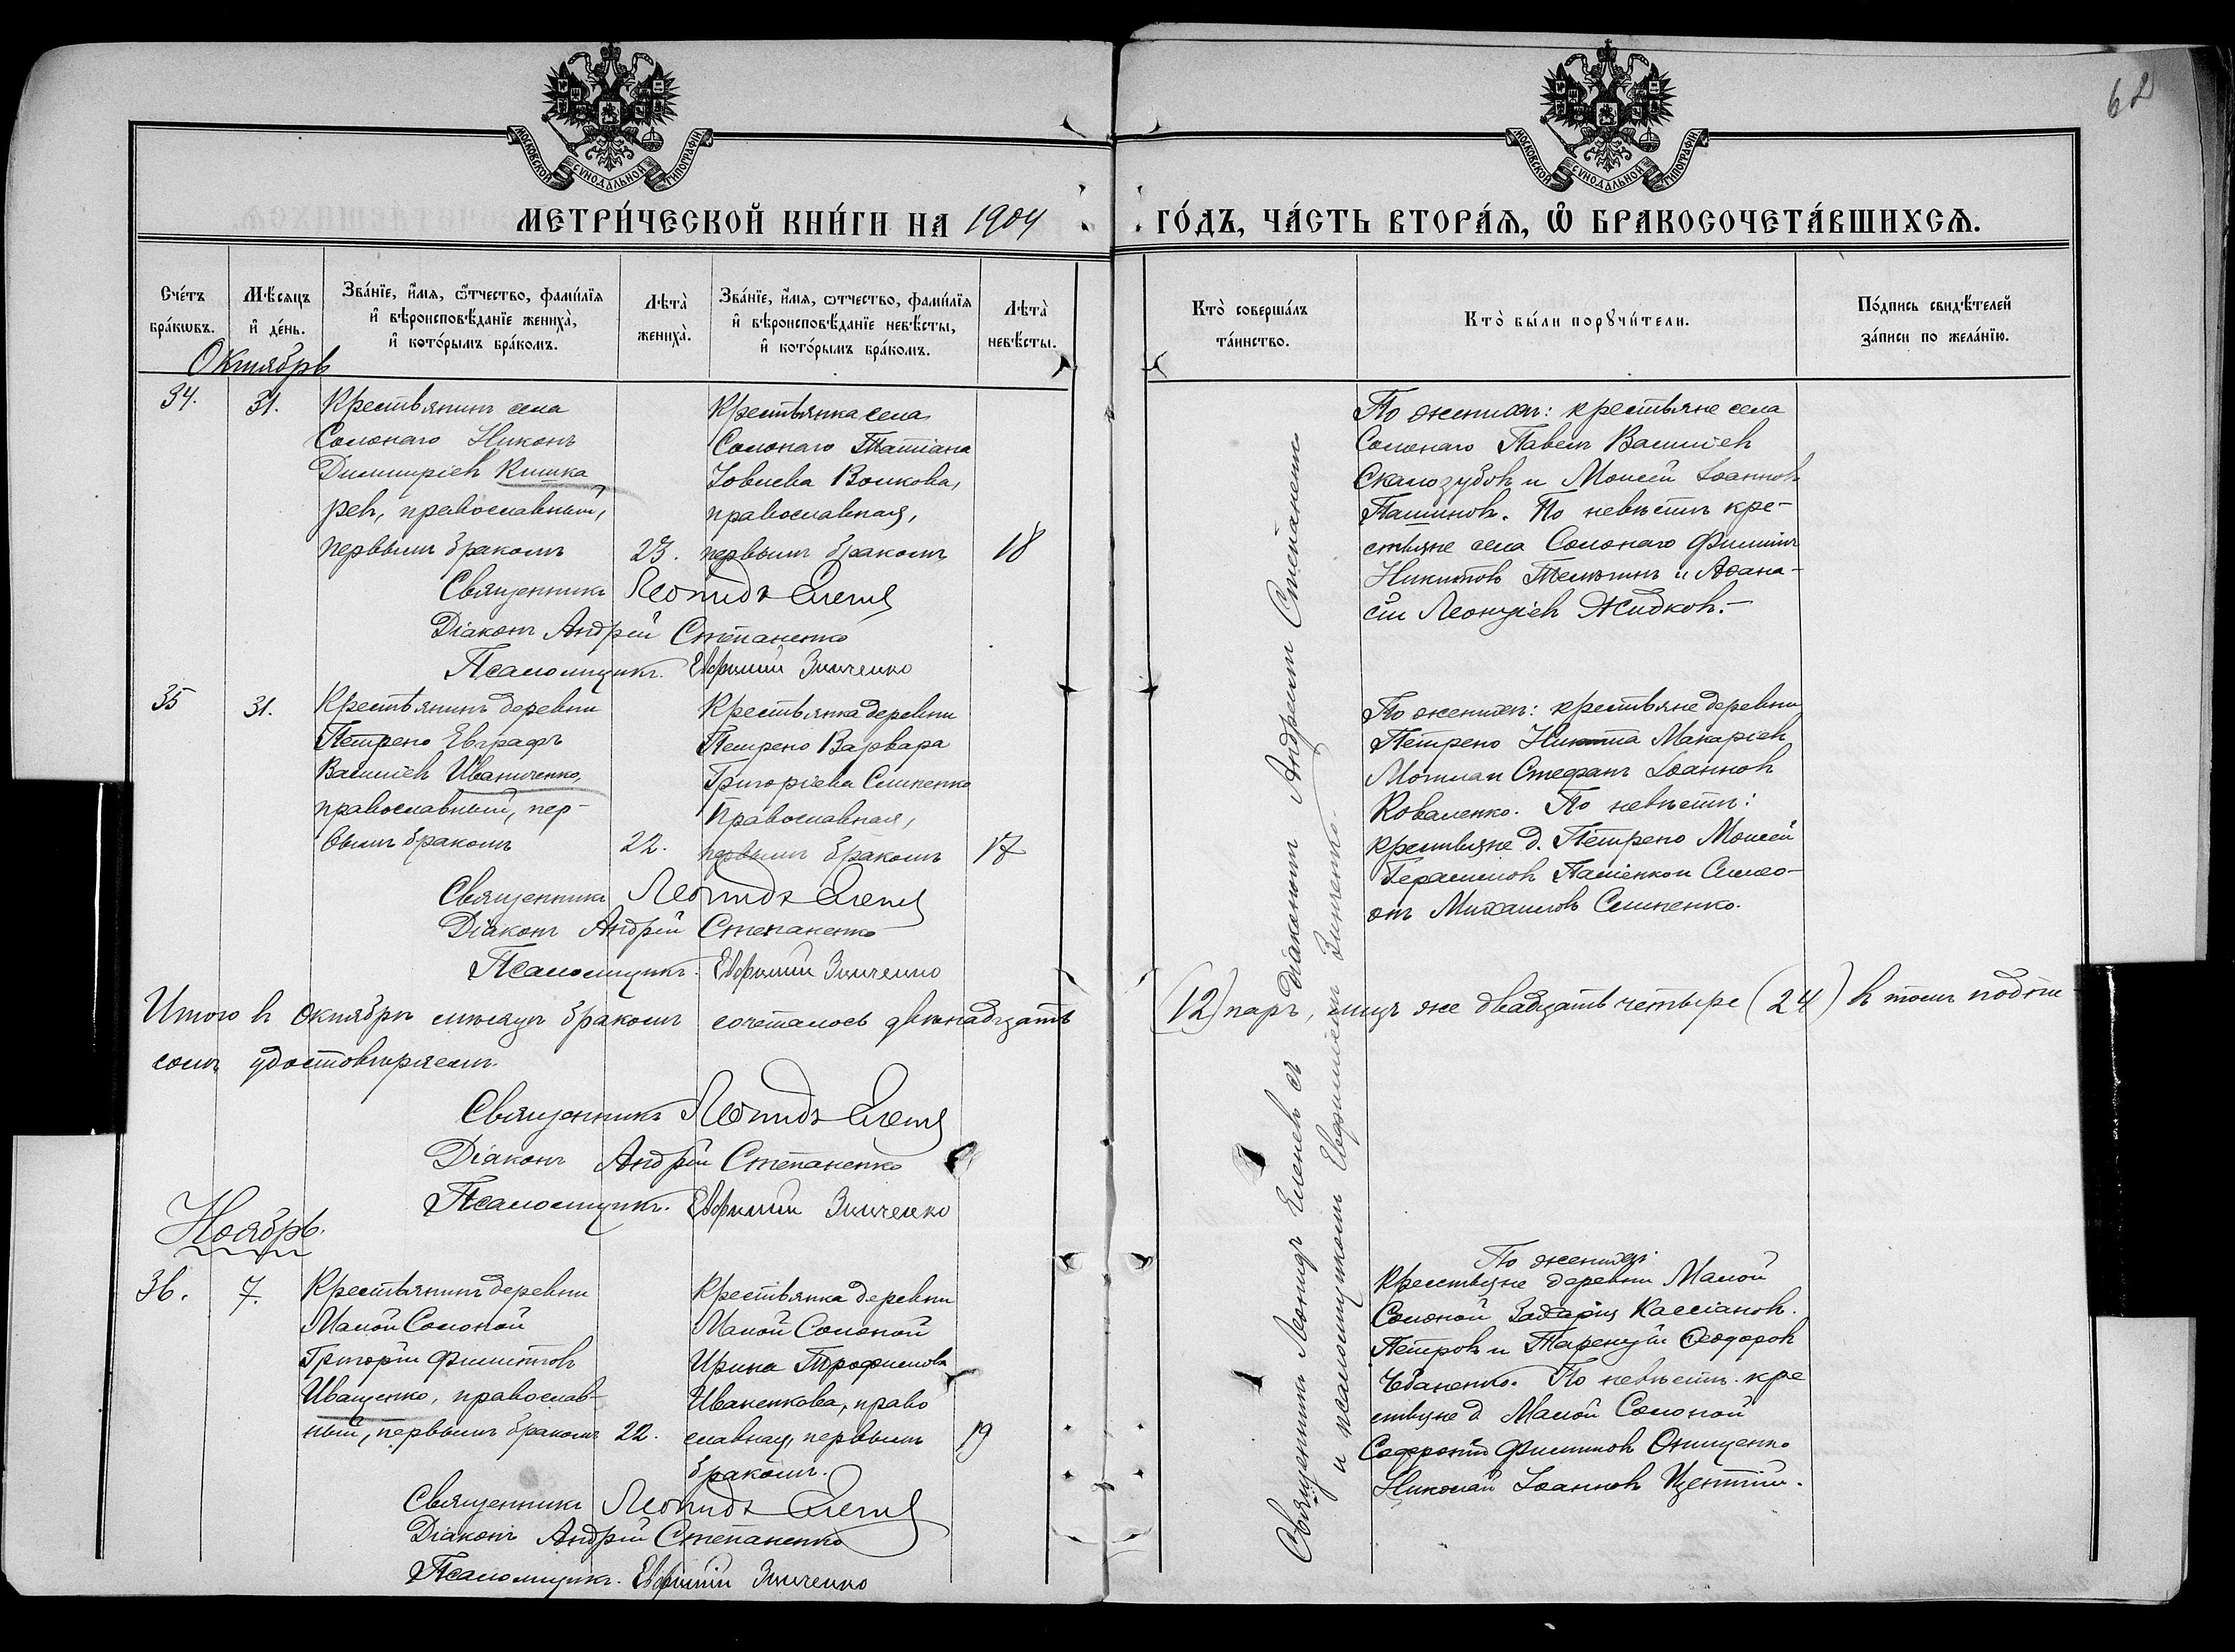 62
МОСКОВСКОЙ СУНОДАЛЬНОЙ ТИПОГРАФІИ
МОСКОВСКОЙ СУНОДАЛЬНОЙ ТИПОГРАФІИ
МЕТРИ́ЧЕСКОЙ КНИ́ГИ НА 1904 ГО́ДЪ, ЧА́СТЬ ВТОРА́Ѧ, Ѡ҆ БРАКОСОЧЕТА́ВШИХСѦ.
Сче́тъ бра́кѡвъ.
Мѣ́сяцъ и҆ де́нь.
Зва́нїе, и҆́мя, ѻ҆́тчество, фами́лїя и҆ вѣроисповѣ́данїе жениха̀, и҆ кото́рымъ бра́комъ.
Лѣта̀ жениха̀.
Зва́нїе, и҆́мя, ѻ҆́тчество, фами́лїя и҆ вѣроисповѣ́данїе невѣ́сты, и҆ кото́рымъ бра́комъ.
Лѣта̀ невѣ́сты.
Кто̀ соверша́лъ та́инство.
Кто̀ бы́ли порꙋчи́тели.
По́дпись свидѣ́телей за́писи по жела́нїю.
Октябрь
34.
31.
Крестьянинъ села
Солонаго Никонъ
Димитріевъ Кишка
ревъ, православный,
первымъ бракомъ
23.
Крестьянка села
Солонаго Татіана
Іовлева Волкова,
православная,
первымъ бракомъ
18
По женихѣ: крестьяне села
Солонаго Павелъ Василіевъ
Скалозубовъ и Моисей Іоанновъ
Пашиновъ. По невѣстѣ кре-
стьяне села Солонаго Филиппъ
Никитовъ Телегинъ и Аѳана-
сій Леонтіевъ Жидковъ.-
Священникъ Леонидъ Еленевъ
Діаконъ Андрей Степаненко
Псаломщикъ. Евфимій Зинченко
35
31.
Крестьянинъ деревни
Петрено Евграфъ
Василіевъ Иваниченко,
православный, пер-
вымъ бракомъ
22.
Крестьянка деревни
Петрено Варвара
Григоріева Слипенко
Православная,
первымъ бракомъ
17
По женихѣ: крестьяне деревни
Петрено Никита Макаріевъ
Стефанъ Іоанновъ
Коваленко. По невѣстѣ:
крестьяне д. Петрено Моисей
Герасимовъ и Симео-
онъ Михаиловъ Слипенко.
Священникъ Леонидъ Еленевъ
Діаконъ Андрей Степаненко
Псаломщикъ. Евфимій Зинченко
Итого въ Октябрѣ мѣсяцѣ бракомъ сочеталось двѣнадцать (12) паръ, лицъ же двадцать четыре (24) въ томъ подпи-
сомъ удостовѣряемъ.
Священникъ Леонидъ Еленевъ
Діаконъ Андрей Степаненко
Псаломщикъ. Евфимій Зинченко
Ноябрь.
36.
7.
Крестьянинъ деревни
Малой Солоной
Григорій Филиповъ
Иващенко, православ-
ный, первымъ бракомъ
22.
Крестьянка деревни
Малой Солоной
Ирина Трофимова
Иваненкова, право
славная, первымъ
бракомъ.
19
По женихѣ:
Крестьяне деревни Малой
Солоной Захарія Кассіановъ.
Петровъ и Терентій Ѳеодоровъ
Чебаненко. По невѣстѣ. кре
стьяне д Малой Солоной
Софроній Филиповъ Онищенко
Николай Іоанновъ
Священникъ Леонидъ Еленевъ
Діаконъ Андрей Степаненко
Псаломщикъ. Евфимій Зинченко
Священникъ Леонидъ Еленевъ съ діакономъ Андреемъ Степаненко
и псаломщикомъ Евфиміемъ Зинченко.